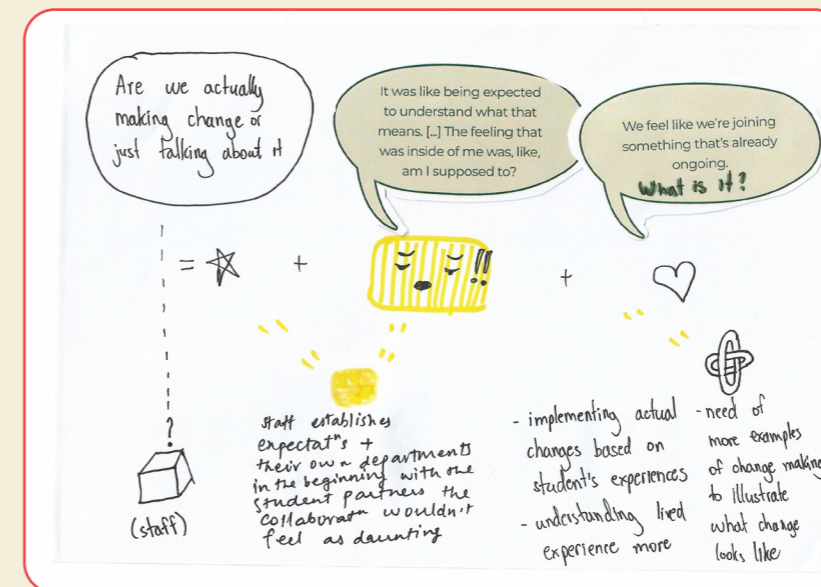 Are we actually
making change or
just talking about it
It was like being expected
to understand what that
means. [...] The feeling that
was inside of me was, like,
am I supposed to?
We feel like we're joining
something that's already
ongoing.
What is it?
= +
!!
+
?
(staff)
staff establishes
expectatⁿs +
their own departments
in the beginning with the
student partners the
collaboratⁿ wouldn't
feel as daunting
- implementing actual
changes based on
student's experiences
- understanding lived
experience more
- need of
more examples
of change making
to illustrate
what change
looks like